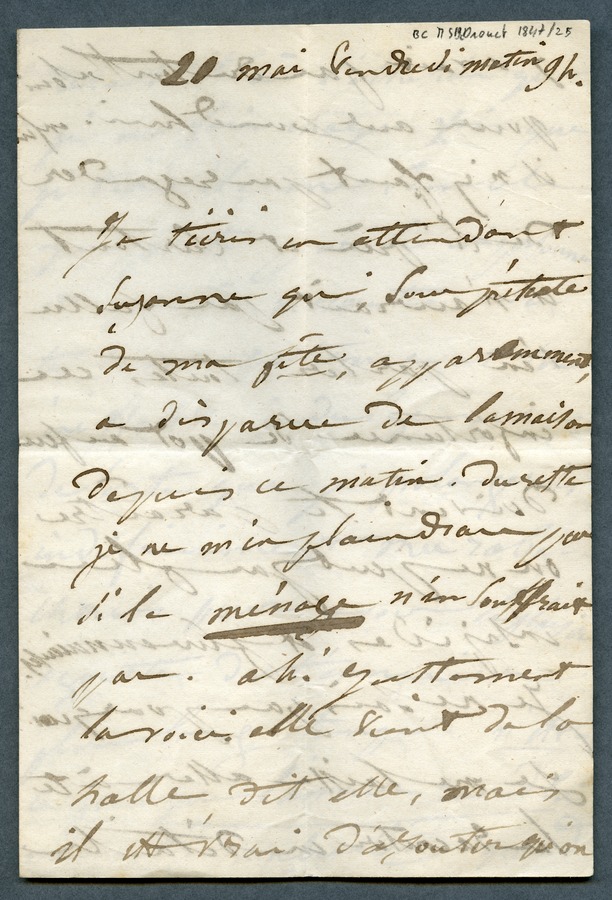 BC MS Drouet 1847/25
20 mai Vendredi matin 9h.
Je t'écris en attendant
Suzanne qui sous prétexte
de ma fête, apparemment,
a disparue de la maison
depuis ce matin. Du reste
je ne m'en plaindrais pas
si le ménage n'en souffrait
pas. ah! justement
la voici. elle vient de la
halle dit elle, mais
il est vrai d'ajouter qu'on